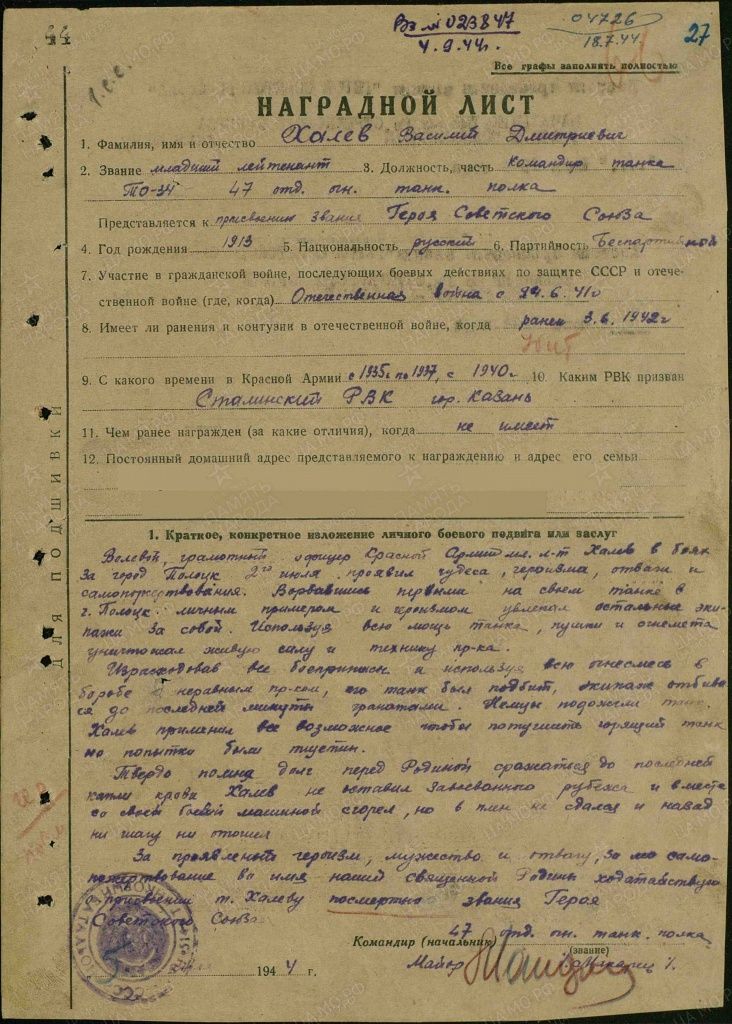 44
Вх № 023847
4.9.44г.
04726
18.7.44
27
Все графы заполнять полностью
НАГРАДНОЙ ЛИСТ
1. Фамилия, имя и отчество Халев Василий Дмитриевич
2. Звание младший лейтенант 3. Должность, часть командир танка
ТО-34 47 отд. огн. танк. полка
Представляется к присвоению звания Героя Советского Союза
4. Год рождения 1913 5. Национальность русский 6. Партийность Беспартийной
7. Участие в гражданской войне, последующих боевых действиях по защите СССР и отече-
ственной войне (где, когда) Отечественная война с 24.6.41г
8. Имеет ли ранения и контузии в отечественной войне, когда ранен 3.6.1942г
Убит
9. С какого времени в Красной Армии с 1935г. по 1937, с 1940г. 10. Каким РВК призван
Сталинский РВК гор. Казань
11. Чем ранее награжден (за какие отличия), когда не имеет
12. Постоянный домашний адрес представляемого к награждению и адрес его семьи
ДЛЯ ПОДШИВКИ
1. Краткое, конкретное изложение личного боевого подвига или заслуг
Волевой, грамотный офицер Красной Армии мл. л-т Халев в боях
за город Полоцк 2го июля проявил чудеса, героизма, отваги и
самопожертвования. Ворвавшись первым на своем танке в
г. Полоцк личным примером и героизмом увлекал остальные эки-
пажи за собой. Используя всю мощь танка, пушки и огнемета
уничтожал живую силу и технику пр-ка.
Израсходовав все боеприпасы и используя всю огнесмесь в
борьбе с неравным пр-ком, его танк был подбит, экипаж отбивал-
ся до последней минуты гранатами. Немцы подожгли танк.
Халев применил все возможное чтобы потушить горящий танк
но попытки были тщетны.
Твердо помня долг перед Родиной сражаться до последней
капли крови Халев не оставил завоеванного рубежа и вместе
со своей боевой машиной сгорел, но в плен не сдался и назад
ни шагу ни отошел
За проявленный героизм, мужество и отвагу, за само-
пожертвование во имя нашей священной Родины ходатайствую
о присвоении т. Халеву посмертно звания Героя
Советского Союза
47 отд. огн. танк. полка
Командир (начальник)
(звание)
Майор
194 4 г.